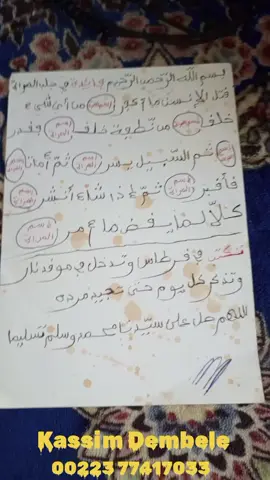 بسم الله الرحمن الرحيم فائدة في جلب المرأة
قتل الإنسن ما أكفر من أي شيء
خلف من نطفة خلف فقدر
ثم السبيل يسر ثم أمات
فأقبر ثم إذا شاء أنشر
كلا لما يفض ما أمر
تكتب في قرطاس وتدخل في موقد نار
وتذكر كل يوم حتى تجيد مرده
اللهم صل على سيدنا محمد وسلم تسليما
Kassim Dembele
00223 77417033